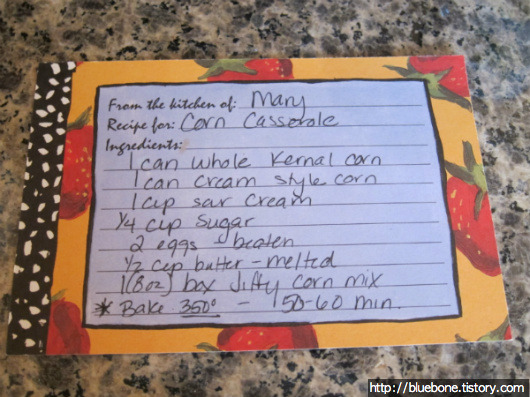 From the kitchen of: Mary
Recipe for: Corn Casserole
Ingredients:
1 can whole Kernal corn
1 can cream style corn
1 cup sour cream
1/4 cup sugar
2 eggs - beaten
1/2 cup butter - melted
1 (8oz) box Jiffy corn mix
* Bake 350° - 50-60 min.
http://bluebone.tistory.com